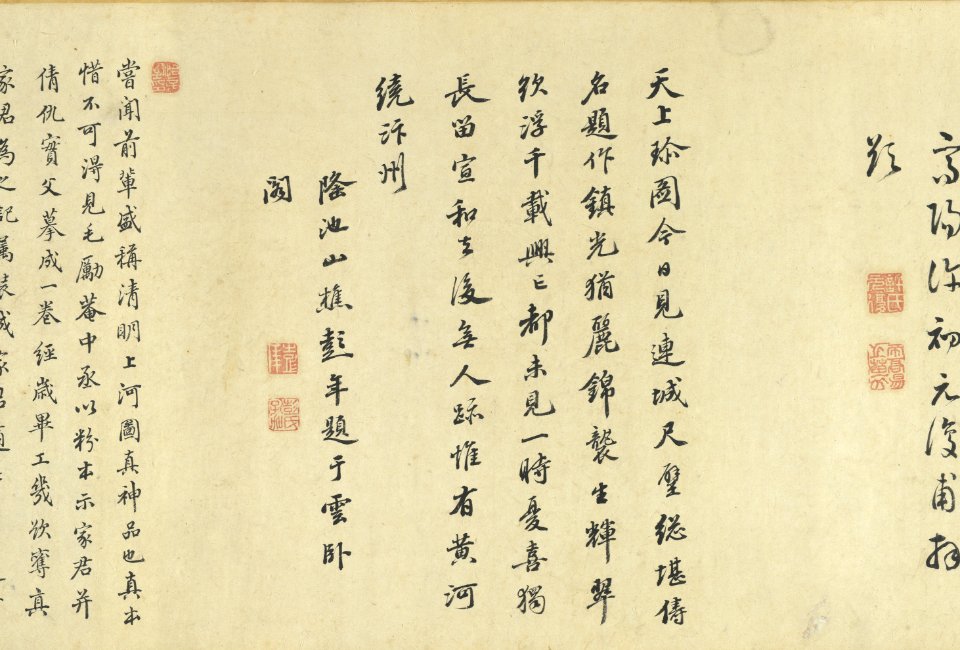 高陽許初元復甫拜
題
天上珎圖今日見連城尺璧總堪儔
名題作鎮光猶麗錦襲生輝翠
欲浮千載興亡都未見一時憂喜獨
長留宣和去後無人跡惟有黄河
繞汴州
隆池山樵彭年題于雲卧
閣
嘗聞前輩盛稱清明上河圖真神品也真本
惜不可得見毛勵菴中丞以粉本示家君并
倩仇實父摹成一卷經歲畢工幾欲奪真
家君為之記屬袁